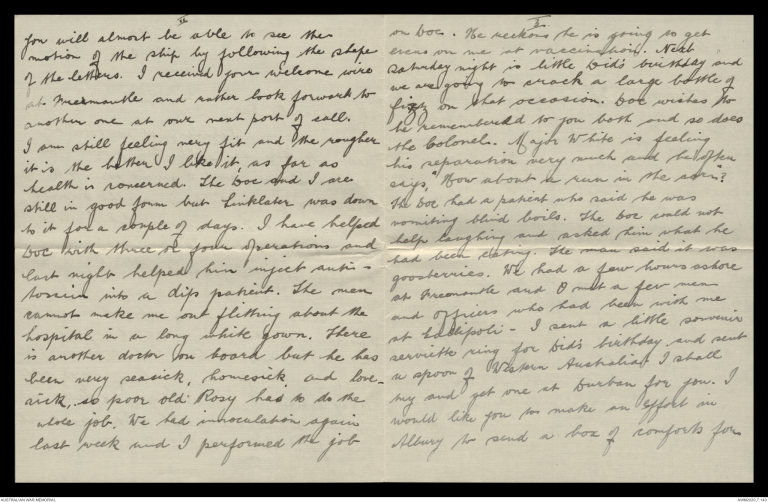 II
you will almost be able to see the
motion of the ship by following the shape
of the letters. I received your welcome wire
at Freemantle and rather look forward to
another one at our next port of call.
I am still feeling very fit and the rougher
it is the better I like it, as far as
health is concerned. The Doc and I are
still in good form but Linklater was down
to it for a couple of days. I have helped
Doc with three or four operations and
last night helped him inject anti-
toxin into a dips patient. The men
cannot make me out flitting about the
hospital in a long white gown. There
is another doctor on board but he has
been very seasick, homesick and love-
sick, so poor old Rosy has to do the
whole job. We had innoculation again
last week and I performed the job
on Doc. He reckons he is going to get
evens on me at vaccination. Next
Saturday night is little Did's birthday and
we are going to crack a large bottle of
fizz on that occasion. Doc wishes to
be remembered to you both and so does
the Colonel. Major White is feeling
his separation very much and he often
says, "How about a run in the car"?
The Doc had a patient who said he was
vomiting blind boils. The Doc could not
help laughing and asked him what he
had been eating. The man said it was
goosberries. We had a few hours ashore
at Freemantle and I met a few men
and officers who had been with me
at Gallipoli - I sent a little souvenir
serviette ring for Did's birthday and sent
a spoon of Western Australia. I shall
try and get one at Durban for you. I
would like you to make an effort in
Albury to send a box of comforts for
AUSTRALIAN WAR MEMORIAL